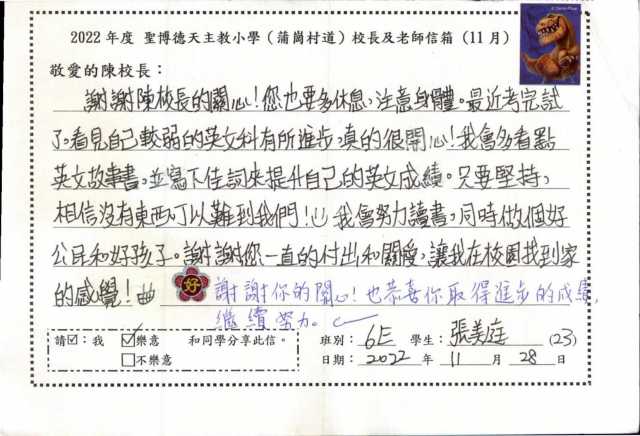 2022 年度 聖博德天主教小學（蒲崗村道）校長及老師信箱（11 月）
敬愛的陳校長：
謝謝陳校長的關心！您也要多休息，注意身體。最近考完試
了，看見自己較弱的英文科有所進步，真的很開心！我會多看點
英文故事書，並寫下佳詞來提升自己的英文成績。只要堅持，
相信沒有東西可以難到我們！我會努力讀書，同時做個好
公民和好孩子。謝謝您一直的付出和關愛，讓我在校園找到家
的感覺！
好
謝謝你的關心！也恭喜你取得進步的成績，
繼續努力。
請☑：我 ☑樂意 和同學分享此信。 班別：6E 學生：張美庭 (23)
☐不樂意 日期：2022 年 11 月 28 日